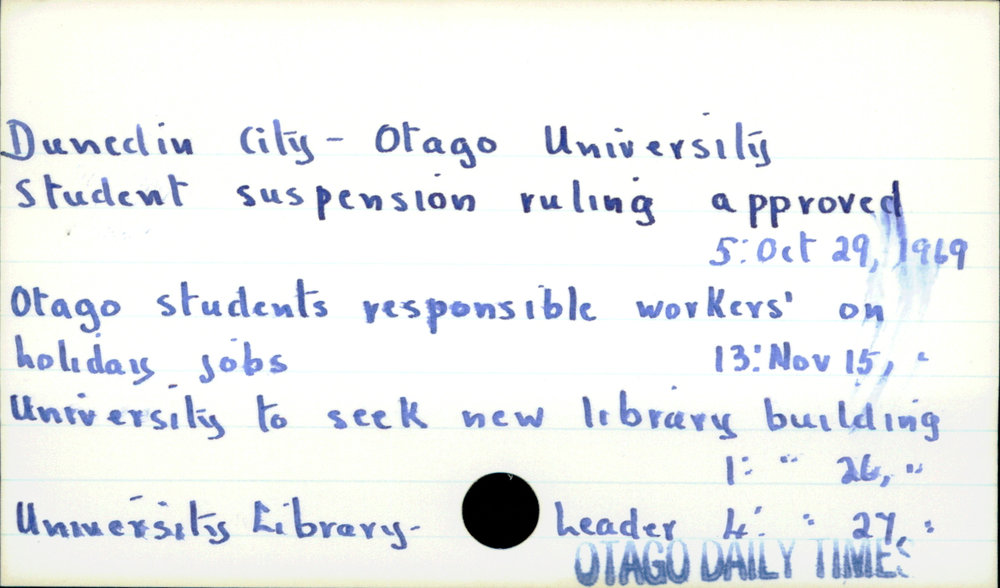 Dunedin City - Otago University
Student suspension ruling approved
5: Oct 29, 1969
Otago students responsible workers' on
holiday jobs 13: Nov 15, "
University to seek new library building
1: " 26, "
University Library - Leader 4: " 27, "
OTAGO DAILY TIMES